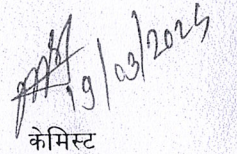 19/03/2025
केमिस्ट